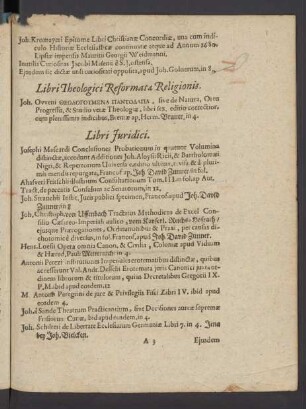 Joh. Kromayeri Epitome Libri Christianæ Concordiæ, una cum indi-
culo Historiæ Ecclesiasticæ continuatæ usque ad Annum 1680.
Lipsiæ impensis Mauritii Georgii Weidmanni.
Inutilis Curiositas Jacobi Masenii è S. J. ostensa,
Ejusdemque dictæ inutili curiositati opposita, apud Joh. Gollnerum, in 8.
Libri Theologici Reformatæ Religionis.
Joh. Oweni ΘΕΟΛΟΓΟΥΜΕΝΑ ΠΑΝΤΟΔΑΠΑ, sive de Natura, Ortu
Progressu, & Studio veræ Theologiæ, libri sex, editio correctior,
cum plenissimis indicibus, Bremæ ap. Herm. Brauer, in 4.
Libri Juridici.
Josephi Mascardi Conclusiones Probationum in quatuor Volumina
distinctæ, accedunt Additiones Joh. Aloysii Ricii, & Bartholomæi
Nigri, & Repertorium Universale tandem ultimò, revisa & à pluri-
mis mendis repurgata, Francof. ap. Joh. David Zunner in fol.
Ahasveri Fritschii
Tract. de præcariis Consulum ac Senatorum, in 12,
Joh. Strauchii Institut. Juris Publici specimen, Francof. apud Joh. David
Zunner in 8
Joh. Christoph. von Uffenbach Tractatus Methodicus de Excel.
Consilio Cæsareo Imperiali aulico, vom Kayserl. Reichs-Hofrath /
ejusque Prærogativis, Ordinationibus & Praxi, per centas di-
chotomicè divisus, in fol. Francof. apud Joh. David Zunner.
Herc. Loesii Opera omnia Canon. & Civilia, Coloniæ apud Viduam
& Hæred. Pauli Metternich in 4.
Antonii Perezi Institutiones Imperiales erotematibus distinctæ, quibus
accesserunt Val. Andr. Desselii Erotemata juris Canonici juxta or-
dinem librorum & titulorum, quibus Decretalibus Gregorii IX.
P. M. ibid. apud eundem 12
M. Antonii Peregrini de jure & Privilegiis Fisci Libri IV. ibid apud
eundem 4.
Joh. à Sande Theatrum Practicantium, sive Decisiones aureæ supremæ
Frisiorum Curiæ, ibid apud eundem, in 4.
Joh. Schilteri de Libertate Ecclesiarum Germaniæ Libri 7. in 4. Jena
bey Joh. Bielcken.
A 3
Ejusdem